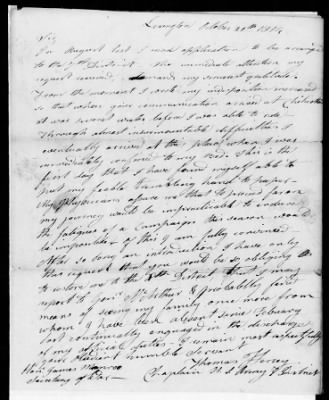 Lexington October 20th 1814
Sir,
In August last I made application to be arranged
to the 7th District. The immediate attention my
request received, demands my sincerest gratitude.
From the moment I my indisposition increased
so that when your communication arrived at Chilicothe
it was several weeks before I was able to ride
Through almost insurmountable difficulties I
eventually arrived at this place, when I was
immediately confined to my bed. This is the
first day that I have found myself able to
put my feeble trembling hand to paper.
My physicians assure me that to proceed farther
my journey will be impracticable & to undergo
the fatigues of a Campaign this season would
be impossible of this I am fully convinced.
After so long an introduction I have only
this request that you would be so obliging as
to me to the 8th District that I may
report to Genl. McArthur & probably find
means of seeing my family once more from
whom I have been absent since February
last continually engaged in the discharge
of my official duties. I remain most respectfully
your obedient humble Servant
Thomas Hersey
Chaplain U S Army 7 District
Hon. James Monroe
Secretary of War